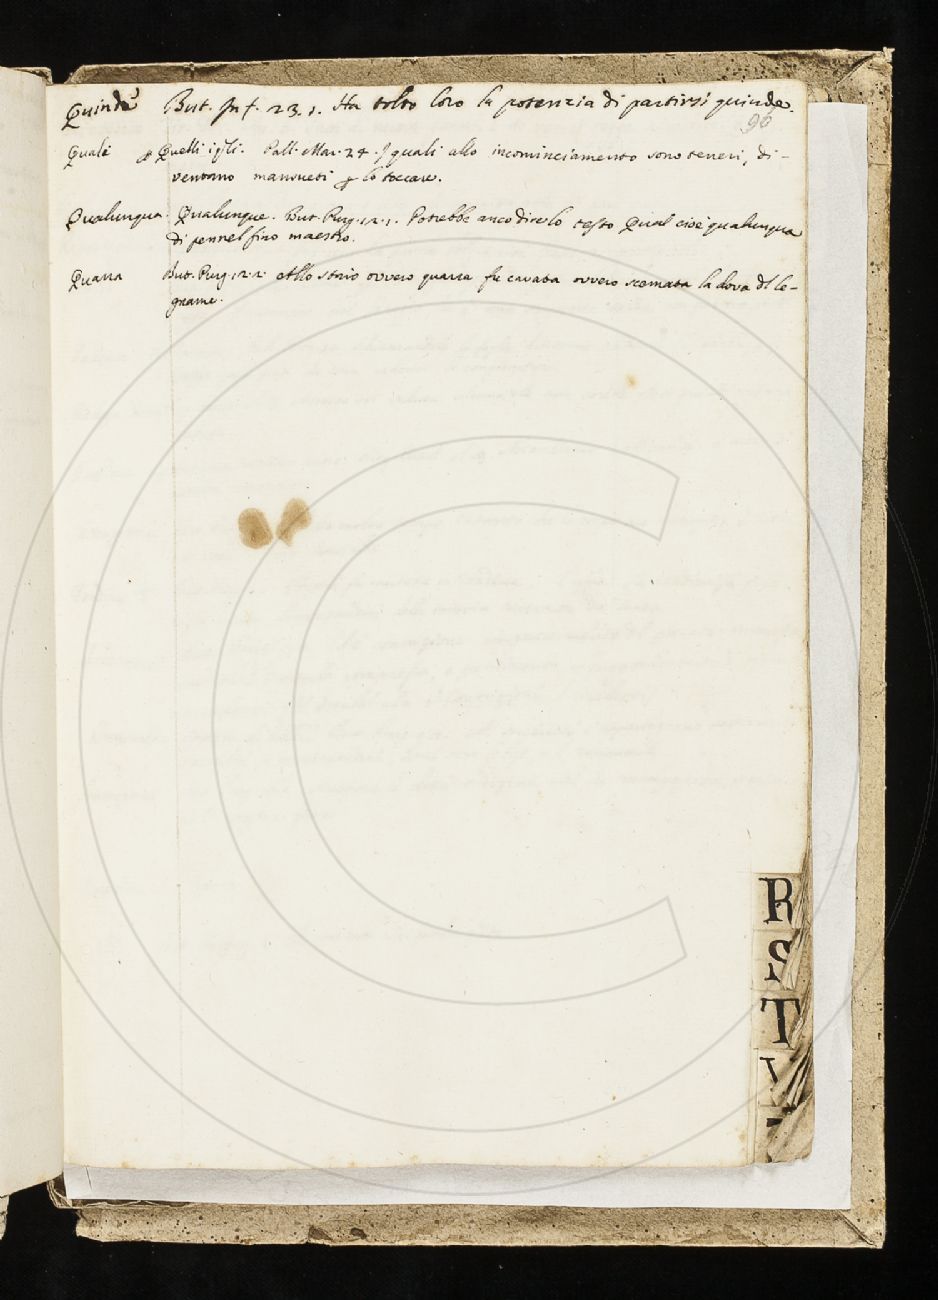 Quinde But. Inf. 23. 1. Ha tolto loro la potenzia di partirsi quinde
96
Quale p Quelli i qli. Pall. Mar. 24. I quali allo incominciamento sono teneri, di-
ventano mansueti p lo toccare.
Qualunqua. Qualunque. But. Purg. 12. 1. Potrebbe anco dire lo testo Qual cioè qualunqua
di pennel fino maestro.
Quarra But. Purg. 12. 2. Allo staio ovvero quarra fu cavata ovvero scemata la dova dl le-
gname.
R
S
T
V